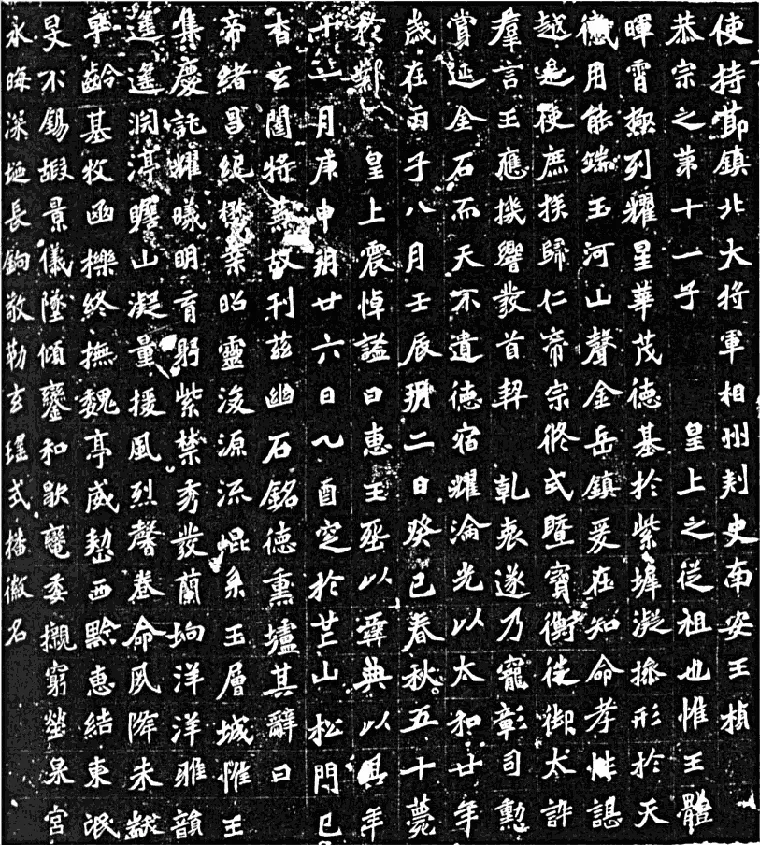 使持節鎮北大將軍相州刺史南安王楨
恭宗之第十一子 皇上之從祖也惟王體
暉霄極列耀星華茂德基於紫墀凝操形於天
儀用能端玉河山聲金岳鎮爰在知命孝性諶
越是使庶族歸仁帝宗攸式暨寶衡徙御太訊
羣言王應機響發首契 乾衷遂乃寵彰司勳
賞延金石而天不遺德宿耀淪光以太和廿年
歲在丙子八月壬辰朔二日癸巳春秋五十薨
於鄴 皇上震悼諡曰惠王葬以彝典以其年
十一月庚申朔廿六日乙酉窆於芒山松門已
杳玄闥將蕪故刊茲幽石銘德熏壚其辭曰
帝緒昌紀懋業昭靈浚源流崐系玉層城惟王
集慶託耀曦明育躬紫禁秀發蘭坰洋洋雅韻
遙遙淵渟瞻山凝量援風烈馨眷命夙降未黻
早齡基牧函櫟終撫魏亭威整西黔惠結東氓
旻不錫嘏景儀墜傾鑾和歇轡委櫬窮塋泉宮
永晦深埏長鉤敬勒玄瑤式播徽名